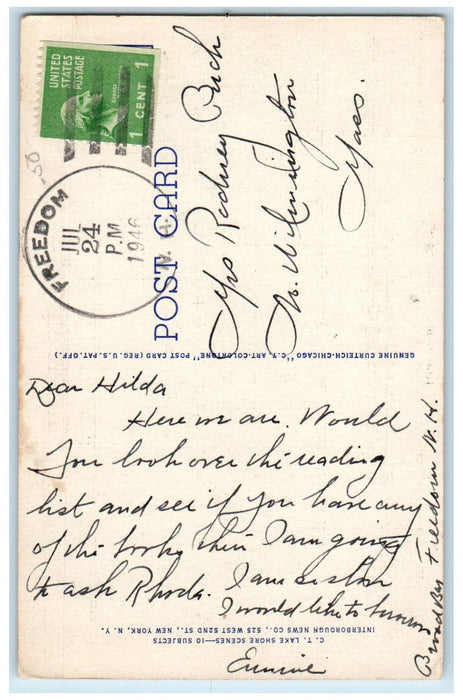 UNITED
STATES
POSTAGE
1 CENT 1
FREEDOM
JUL
24
P.M
1946
N.H.
POST CARD
Mrs Rodney Buck
N. Wilmington
Mass.
GENUINE CURTEICH-CHICAGO "C. T. ART-COLORTONE" POST CARD (REG. U. S. PAT. OFF.)
Dear Hilda
Here we are. Would
you look over the reading
list and see if you have any
of the books then I am going
to ask Rhoda. I am so slow
I would like to
Broad Bay Freedom N.H.
C. T. LAKE SHORE SCENES—10 SUBJECTS
INTERBOROUGH NEWS CO., 525 WEST 52ND ST., NEW YORK, N. Y.
Eunice